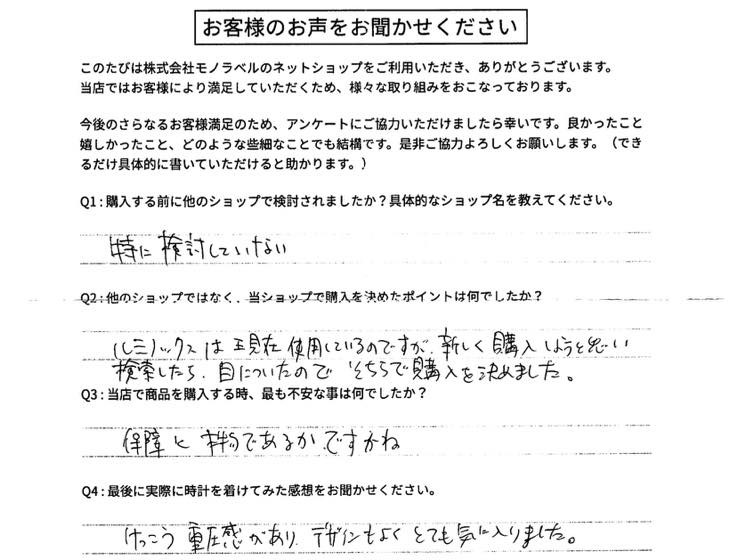 お客様のお声をお聞かせください
このたびは株式会社モノラベルのネットショップをご利用いただき、ありがとうございます。
当店ではお客様により満足していただくため、様々な取り組みをおこなっております。
今後のさらなるお客様満足のため、アンケートにご協力いただけましたら幸いです。良かったこと
嬉しかったこと、どのような些細なことでも結構です。是非ご協力よろしくお願いします。（でき
るだけ具体的に書いていただけると助かります。）
Q1：購入する前に他のショップで検討されましたか？具体的なショップ名を教えてください。
特に検討していない
Q2：他のショップではなく、当ショップで購入を決めたポイントは何でしたか？
ルミノックスは現在使用しているのですが、新しく購入しようと思い
検索したら、目についたのでそちらで購入を決めました。
Q3：当店で商品を購入する時、最も不安な事は何でしたか？
保障と本物であるかですかね
Q4：最後に実際に時計を着けてみた感想をお聞かせください。
けっこう重圧感があり、デザインもよくとても気に入りました。